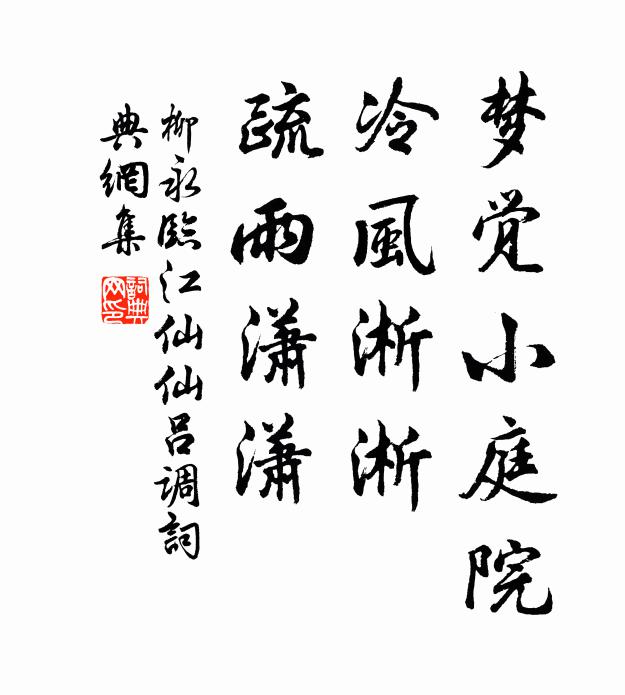 梦觉小庭院
冷風淅淅
疏雨潇潇
柳永臨江仙仙呂调詞
典網集
詞典网印